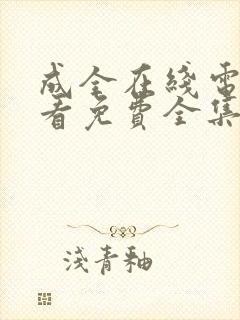 成全在綫電
看免費全集
淺青釉